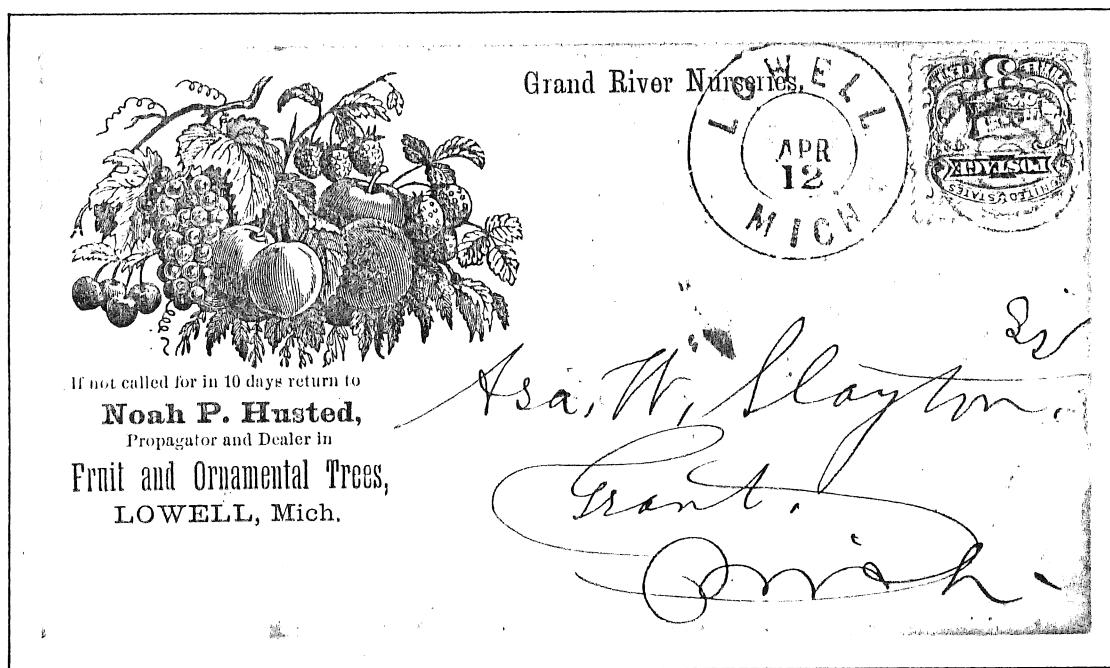 Grand River Nurseries,
LOWELL
APR
12
MICH
3
POSTAGE
UNITED STATES
If not called for in 10 days return to
Noah P. Husted,
Propagator and Dealer in
Fruit and Ornamental Trees,
LOWELL, Mich.
Asa, W, Slayton,
Grant.
Mich.